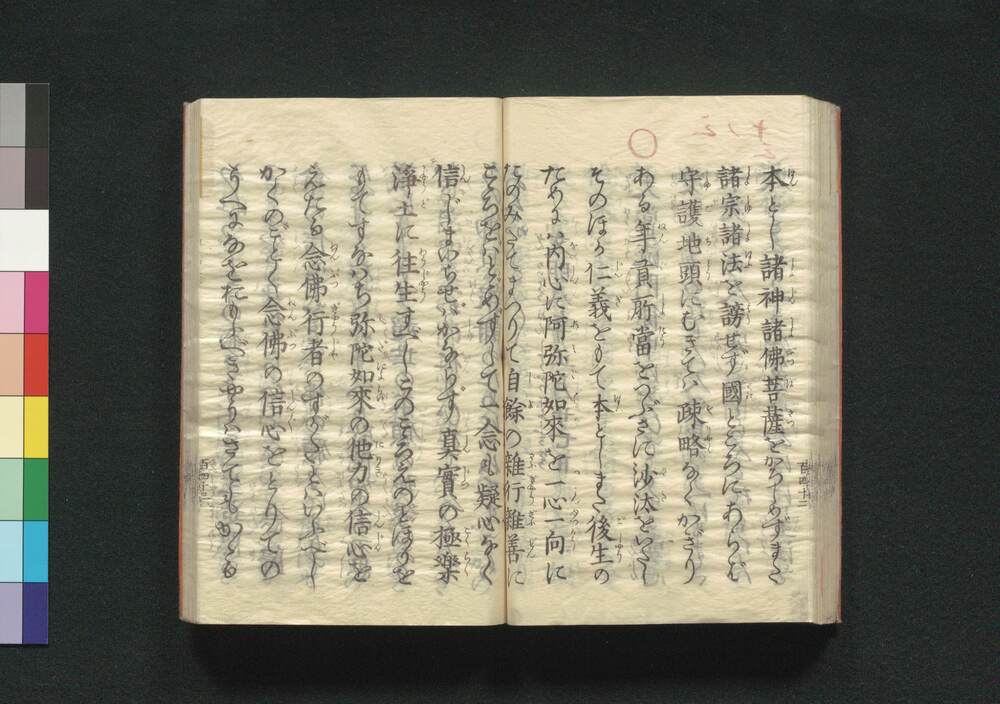 本とし諸神諸佛菩薩をかろしめずまた
諸宗諸法を謗せず國ところにあらば
守護地頭にむきては疎略なくかぎり
ある年貢所當をつぶさに沙汰をいたし
そのほか仁義をもて本としまた後生の
ためには内心に阿弥陀如來を一心一向に
たのみたてまつりて自餘の雜行雜善に
こゝろをばとゞめずして一念も疑心なく
信じまいらせばかならず真實の極樂
淨土に往生すべしこのこゝろえのとほりを
もてすなはち弥陀如來の他力の信心を
えたる念佛行者のすがたとはいふべし
かくのごとく念佛の信心をとりての
うへになをおもふべきやうはさてもかゝる
百四十二
百四十三